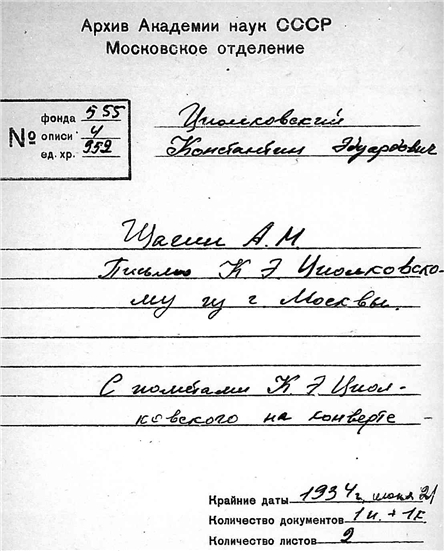 Архив Академии наук СССР
Московское отделение
№
фонда 555
описи 4
ед. хр. 952
Циолковский
Константин Эдуардович
А. М
Письмо К Э Циолковско-
му из г. Москвы.
С пометами К. Э Циол-
ковского на конверте
Крайние даты 1934 г, июня 21
Количество документов 1 п. + 1 к.
Количество листов 2